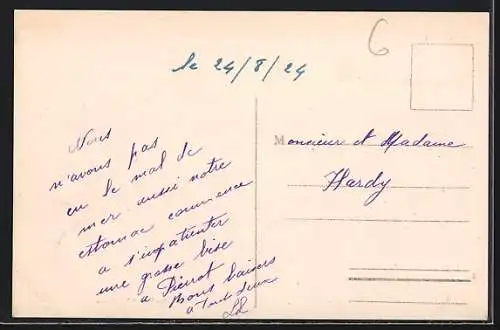 6
le 24/8/24
Nous
n'avons pas
eu le mal de
mer aussi notre
estomac commence
a s'impatienter
une grosse bise
a Pierrot
Bons baisers
à tout deux
Monsieur et Madame
Hardy